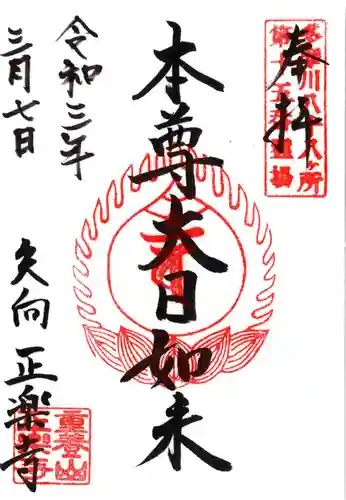 奉拝
多摩川八十八ヶ所
第十五番霊場
本尊大日如来
令和三年
三月七日
矢向 正楽寺
重登山
正楽寺